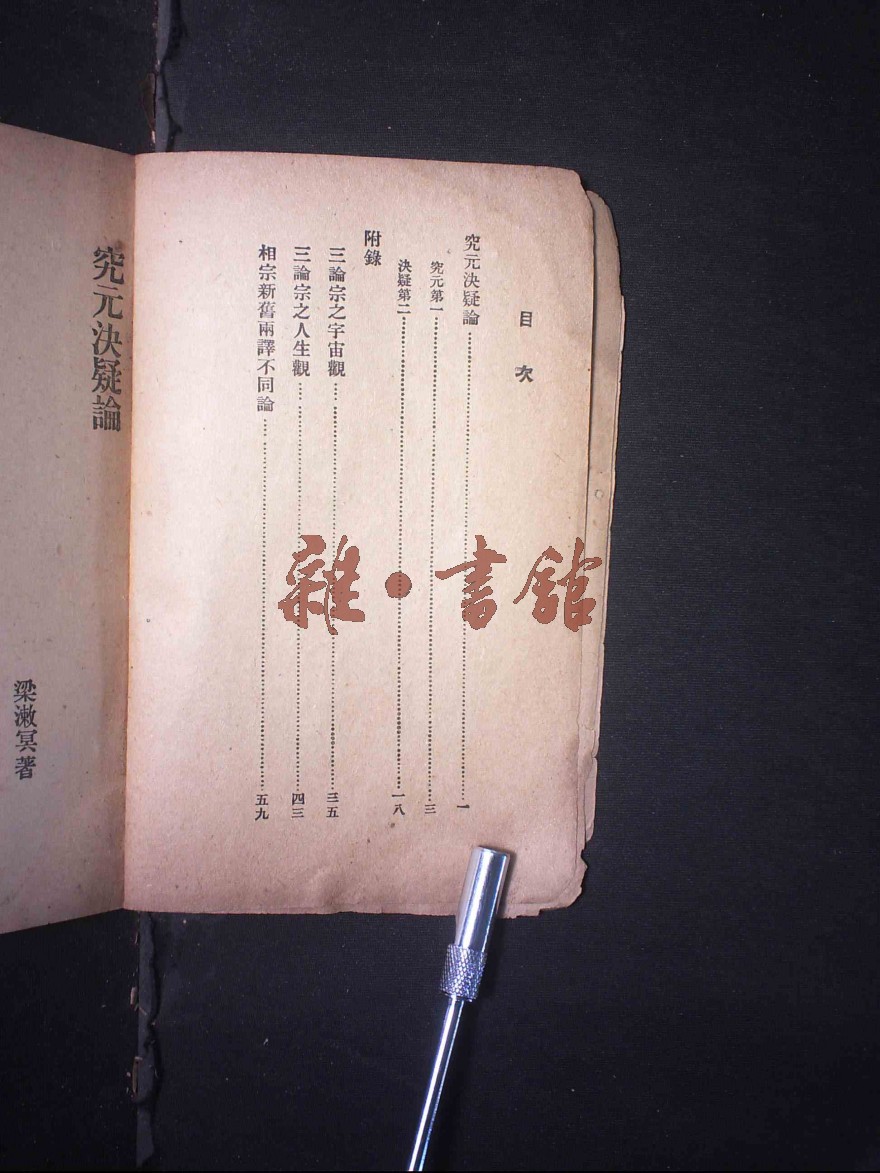 目次
究元決疑論 一
究元第一 三
決疑第二 一八
附錄
三論宗之宇宙觀 三五
三論宗之人生觀 四三
相宗新舊兩譯不同論 五九
究元決疑論
梁漱冥著
雜·書館